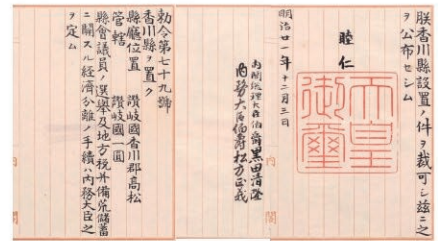 朕香川縣設置ノ件ヲ裁可シ玆ニ之
ヲ公布セシム
睦仁
天皇
御璽
明治廿一年十二月三日
內閣總理大臣伯爵黑田清隆
內務大臣伯爵松方正義
勅令第七十九號
香川縣ヲ置ク
縣廳位置 讚岐國香川郡高松
管轄 讚岐國一圓
縣會議員ノ選擧及地方稅并備荒儲蓄
ニ關スル經濟分離ノ手續ハ內務大臣之
ヲ定ム
內閣